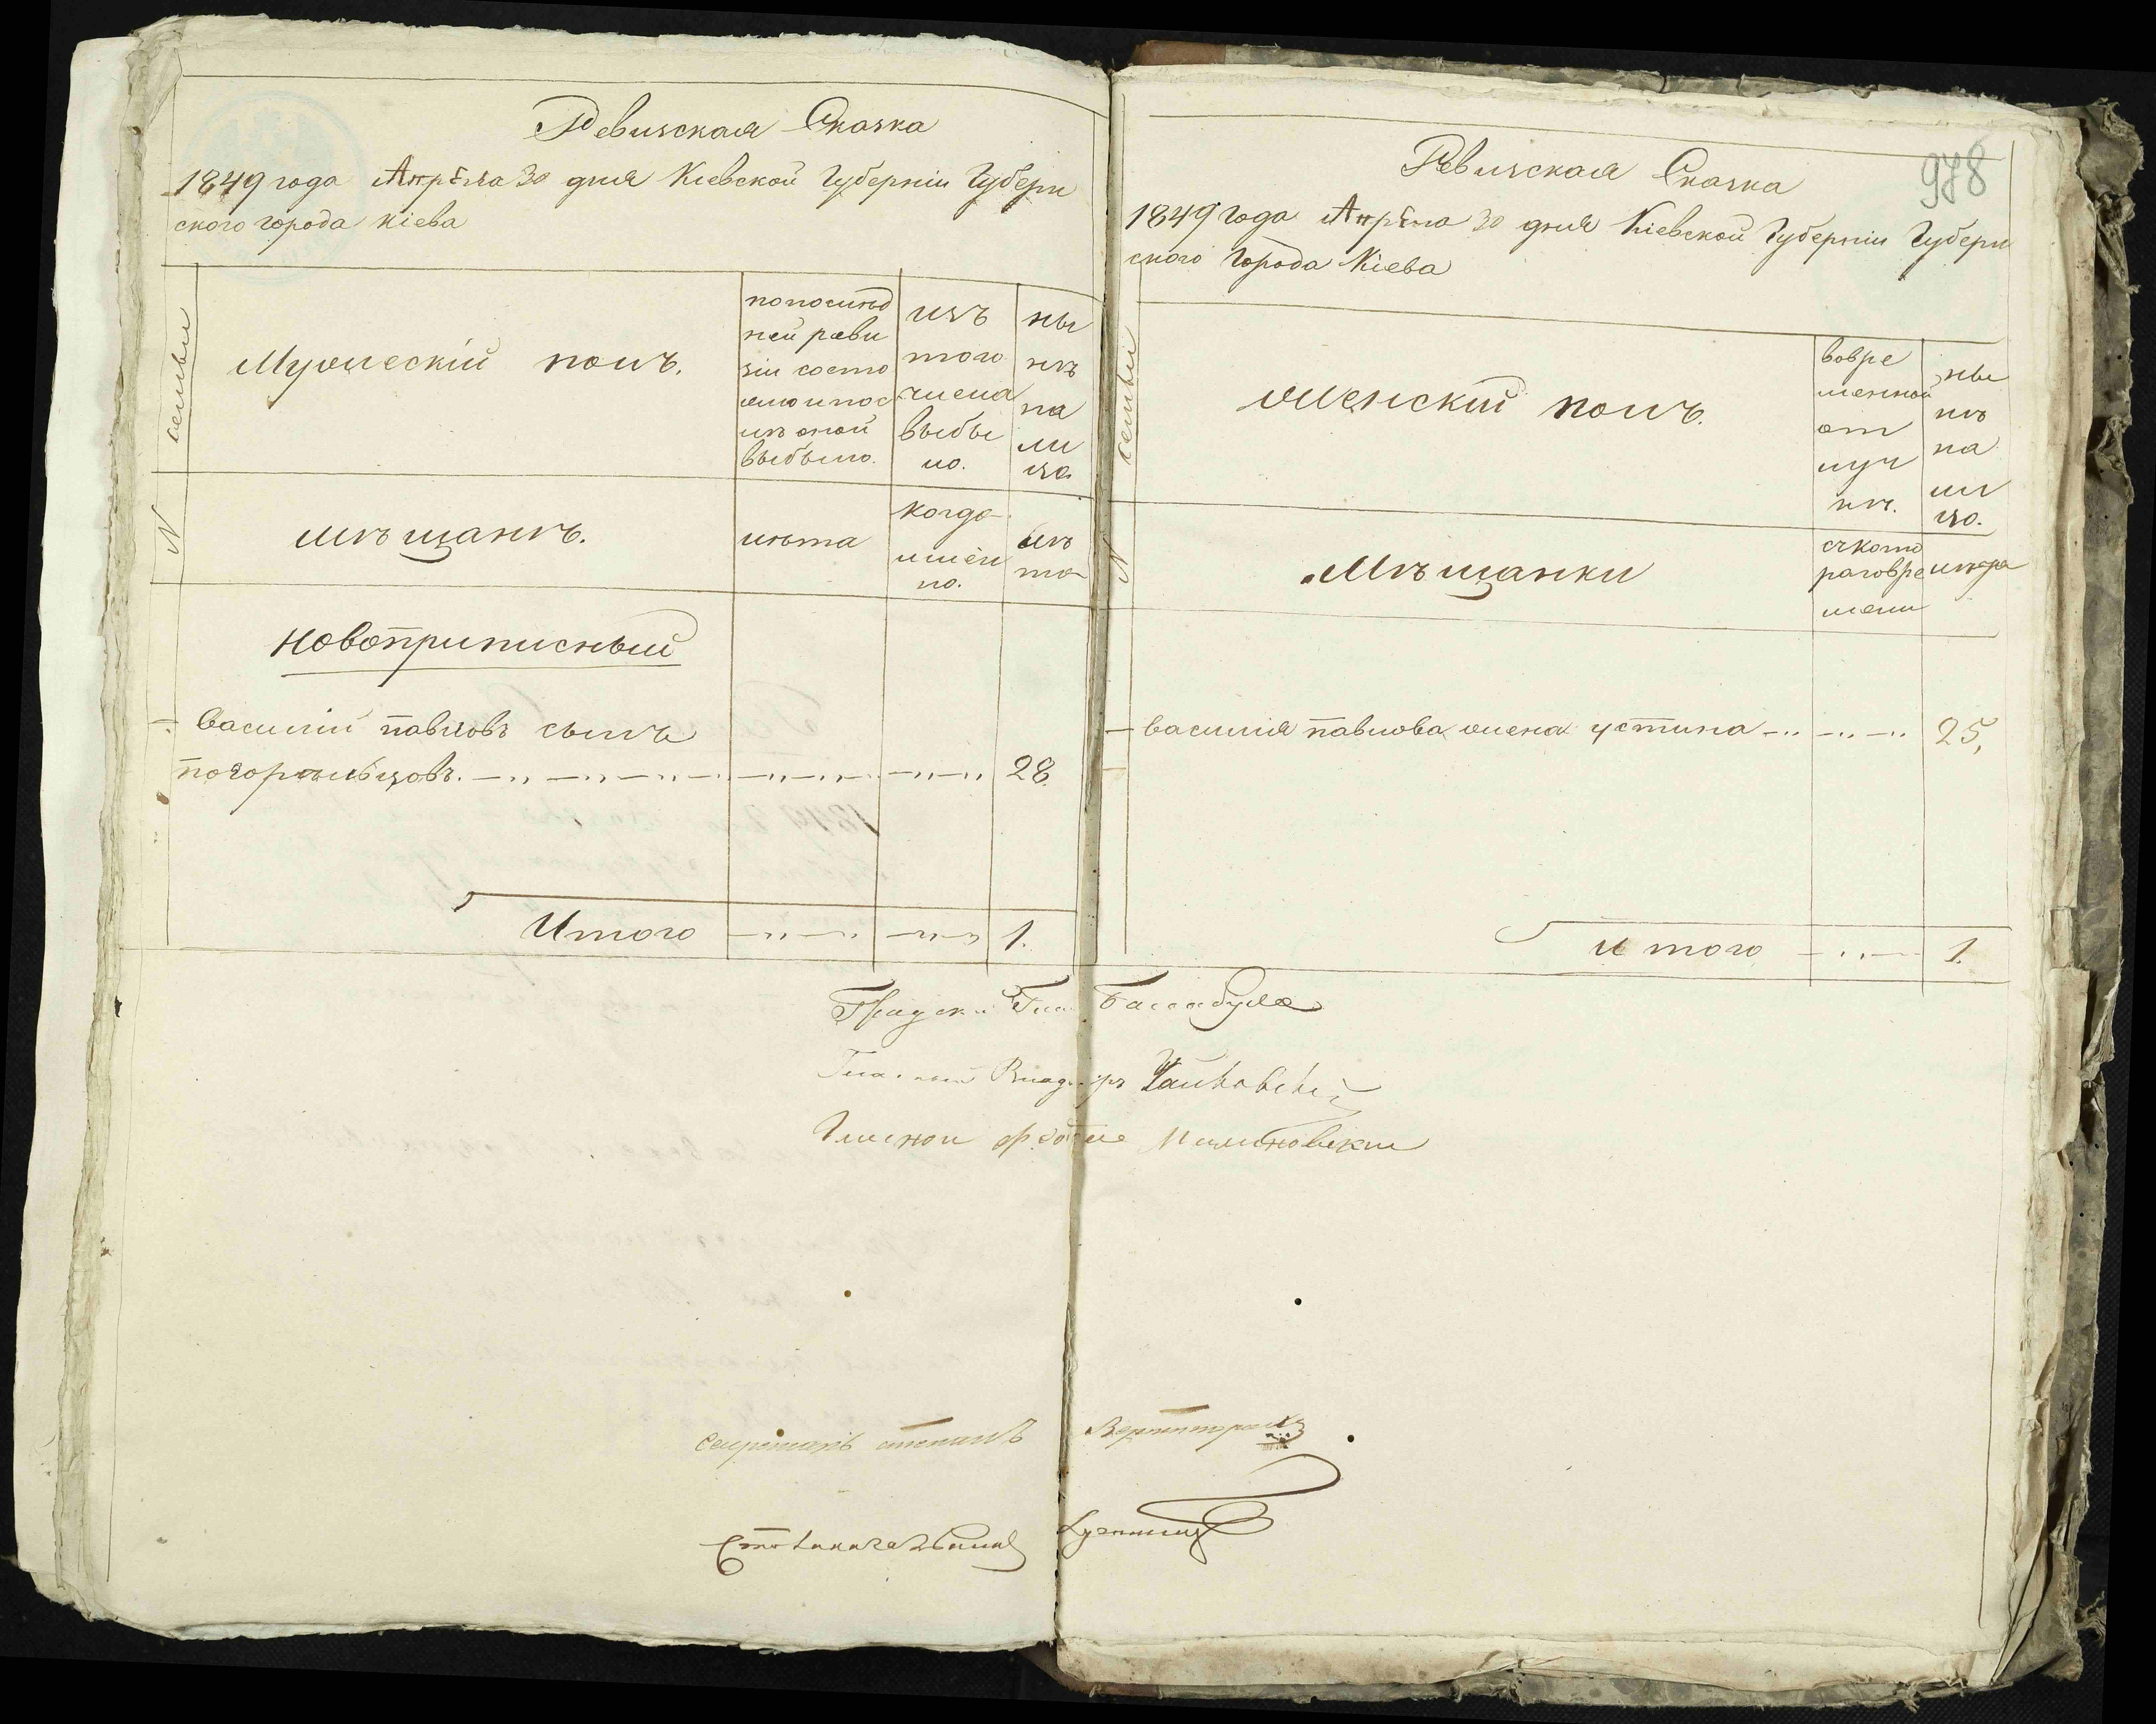 Ревизская Сказка
1849 года Апрѣля 30 дня Кіевской Губерніи Губерн
ского города Кіева
семьи
Мужескій полъ.
по послѣд
ней реви
зіи состо
яло и пос
лѣ оной
выбыло.
изъ
того
числа
выбы
ло.
ны
нѣ
на
ли
цо
N
мѣщанѣ.
лѣта
когда
имен
но.
лѣ
та
Новоприписный
Василій Павловъ сынъ
Погорѣльцовъ.
28.
Итого
1.
978
Ревизская Сказка
1849 года Апрѣла 30 дня Кіевской Губерніи Губерн
ского Города Кіева
семьи
Женскій полъ.
вовре
менной
от
луч
кѣ.
ны
нѣ
на
ли
цо.
N
Мѣщанки
съ кото
раго вре
мени
лѣта
Василія Павлова жена Устина
25,
итого
1.
Градскій Гла Балабуха
Гласный
Гласной
Секретарь Степанъ
Столоначальникъ